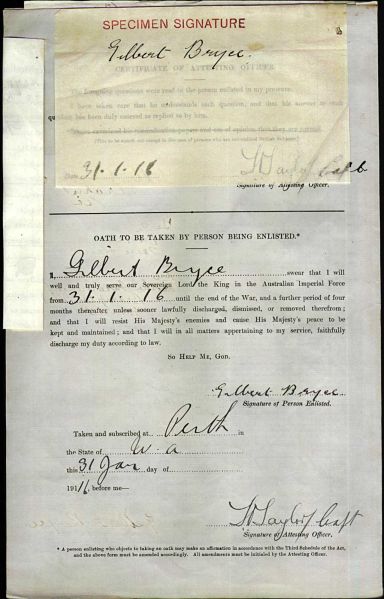 SPECIMEN SIGNATURE
Gilbert Bryce.
CERTIFICATE OF ATTESTING OFFICER.
The foregoing questions were read to the person enlisted in my presence.
I have taken care that he understands each question, and that his answer to each
question has been duly entered as replied to by him.
Date 31.1.16
Signature of Attesting Officer.
OATH TO BE TAKEN BY PERSON BEING ENLISTED.*
I, Gilbert Bryce swear that I will
well and truly serve our Sovereign Lord the King in the Australian Imperial Force
from 31.1.16 until the end of the War, and a further period of four
months thereafter unless sooner lawfully discharged, dismissed, or removed therefrom;
and that I will resist His Majesty's enemies and cause His Majesty's peace to be
kept and maintained; and that I will in all matters appertaining to my service, faithfully
discharge my duty according to law.
SO HELP ME, GOD.
Gilbert Bryce
Signature of Person Enlisted.
Taken and subscribed at Perth in
the State of W.a
this 31 Jan day of
1916 before me—
Capt
Signature of Attesting Officer.
* A person enlisting who objects to taking an oath may make an affirmation in accordance with the Third Schedule of the Act,
and the above form must be amended accordingly. All amendments must be initialed by the Attesting Officer.